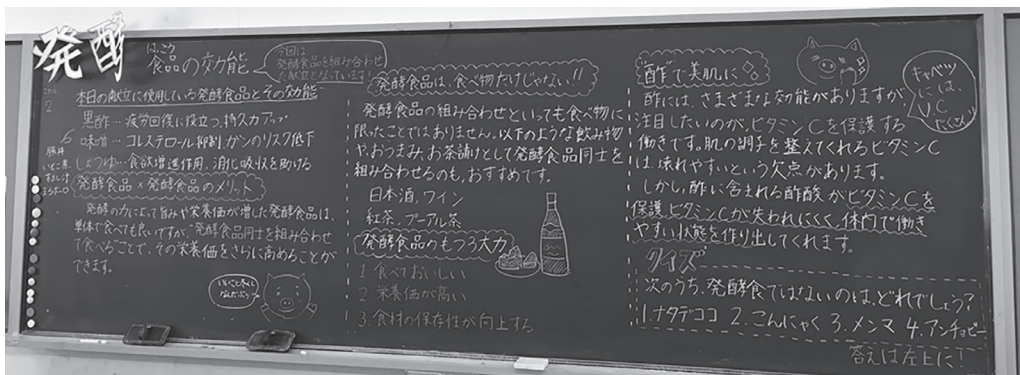 発酵
はっこう
食品の効能
今回は、
発酵食品を組み合わせ
た献立となっています!
本日の献立に使用している発酵食品とその効能
黒酢…疲労回復に役立つ、持久力アップ
味噌…コレステロール抑制、ガンのリスク低下
しょうゆ…食欲増進作用、消化吸収を助ける
発酵食品×発酵食品のメリット
発酵の力によって旨みや栄養価が増した発酵食品は、
単体で食べても良いですが、"発酵食品同士を組み合わせ
て食べる"ことで、その栄養価をさらに高めることが
できます。
いいこと尽くし
なんだぶぅ
2
発酵食品は、食べ物だけじゃない!!
発酵食品の組み合わせといっても食べ物に
限ったことではありません。以下のような飲み物
や、おつまみ、お茶請けとして発酵食品同士を
組み合わせるのも、おすすめです。
日本酒、ワイン
紅茶、プーアル茶
発酵食品のもつ3大力
1.食べておいしい
2.栄養価が高い
3.食材の保存性が向上する
"酢"で美肌に
キャベツ
には、
V.C
たくさん
酢には、さまざまな効能がありますが、
注目したいのが、ビタミンCを保護する
働きです。肌の調子を整えてくれるビタミンC
は壊れやすいという欠点があります。
しかし、酢に含まれる酢酸がビタミンCを
保護、ビタミンCが失われにくく、体内で働き
やすい状態を作り出してくれます。
クイズ
次のうち、発酵食ではないのは、どれでしょう?
1.ナタデココ 2.こんにゃく 3.メンマ 4.アンチョビー
答えは左上に!